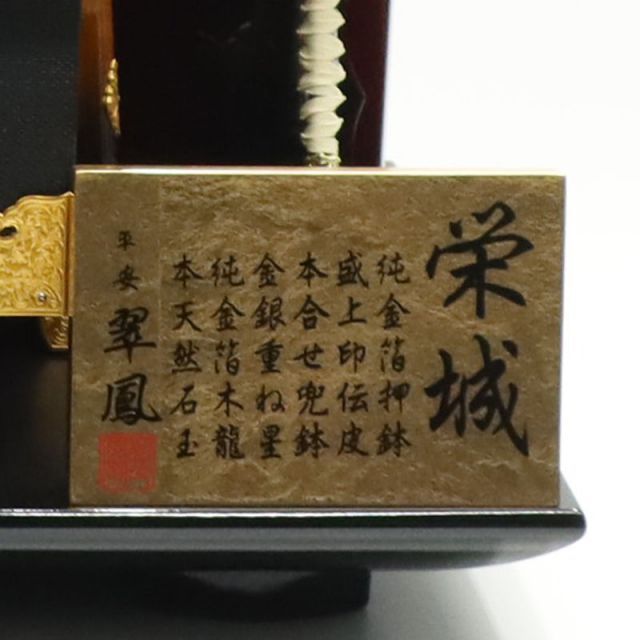 栄城
純金箔押鉢
盛上印伝皮
本合せ兜鉢
金銀重ね星
純金箔木龍
本天然石玉
平安
翠鳳